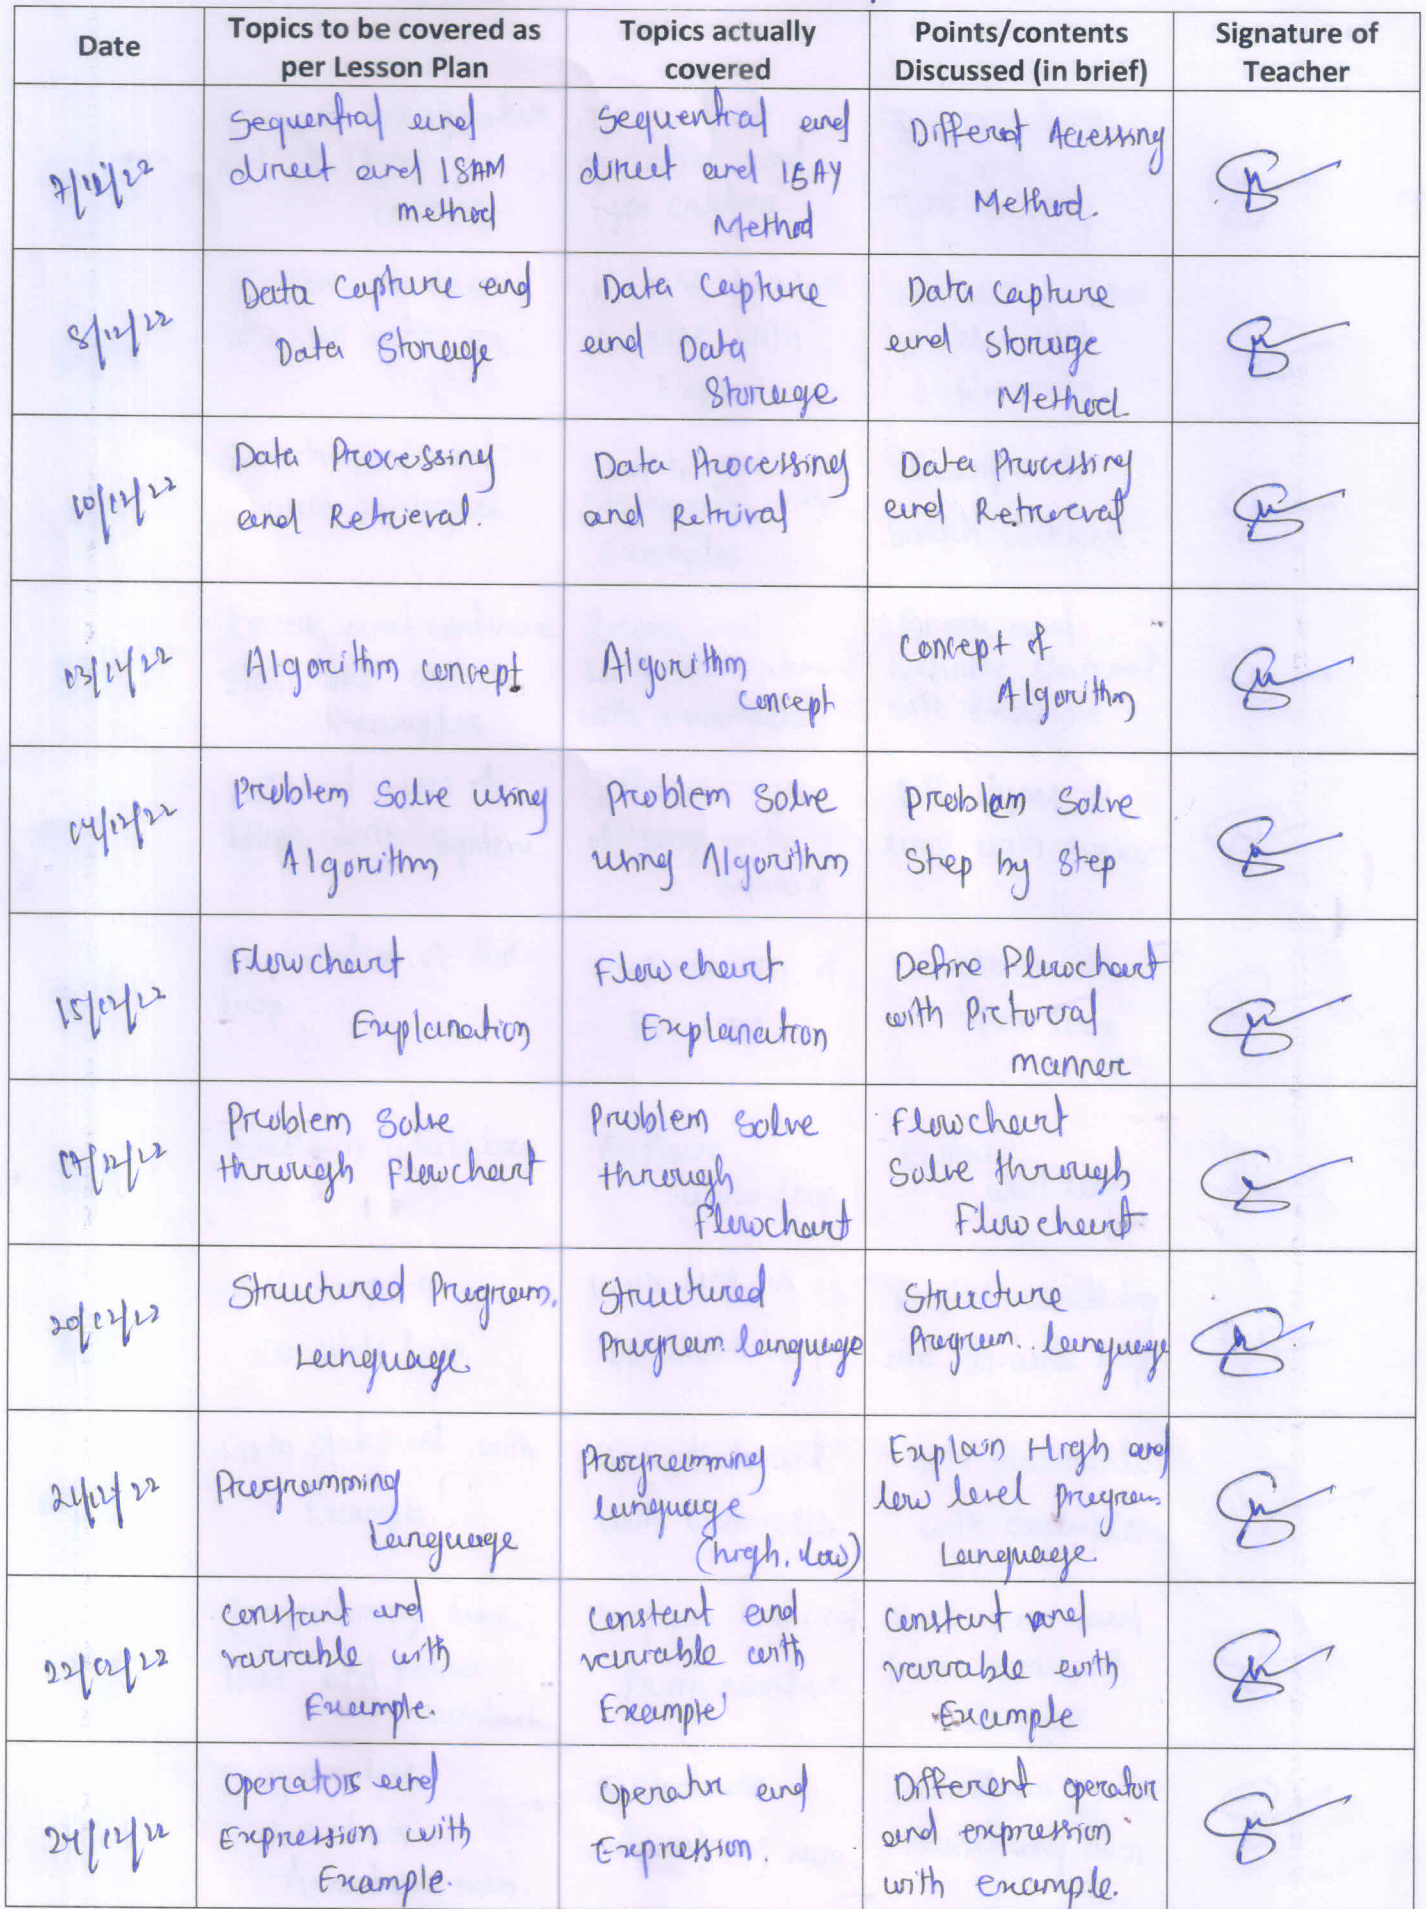 Date
Topics to be covered as
per Lesson Plan
Topics actually
covered
Points/contents
Discussed (in brief)
Signature of
Teacher
7/12/22
Sequential and
direct and ISAM
method
Sequential and
direct and ISAM
Method
Different Accessing
Method.
8/12/22
Data Capture and
Data Storage
Data Capture
and Data
Storage
Data capture
and storage
Method.
10/12/22
Data Processing
and Retrieval.
Data Processing
and Retrival
Data Processing
and Retrieval
Algorithm concept
Algorithm
concept
Concept of
Algorithm
Problem Solve using
Algorithm
Problem Solve
using Algorithm
Problem Solve
Step by Step
15/12/22
Flowchart
Explanation
Flowchart
Explanation
Define Flowchart
with Pictorial
manner
17/12/22
Problem Solve
through Flowchart
Problem Solve
through
Flowchart
Flowchart
Solve through
Flowchart
20/12/22
Structured Program.
Language
Structured
Program. language
Structure
Program. language
21/12/22
Programming
Language
Programming
language
(high, low)
Explain High and
low level program
Language
22/12/22
constant and
variable with
Example.
constant and
variable with
Example
constant and
variable with
Example
24/12/22
Operators and
Expression with
Example.
Operator and
Expression.
Different operator
and expression
with example.